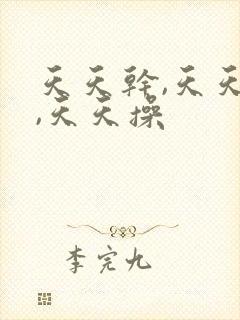 天天幹,天天
,天天操
李完九